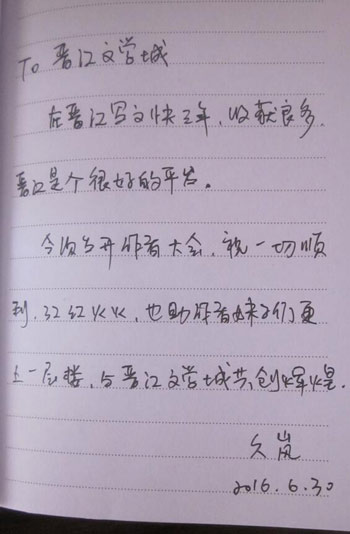 To 晋江文学城
在晋江写文快三年，收获良多。
晋江是个很好的平台。
今次召开作者大会，祝一切顺
利，红红火火，也助作者们更
上一层楼，与晋江文学城共创辉煌。
久岚
2016.6.30